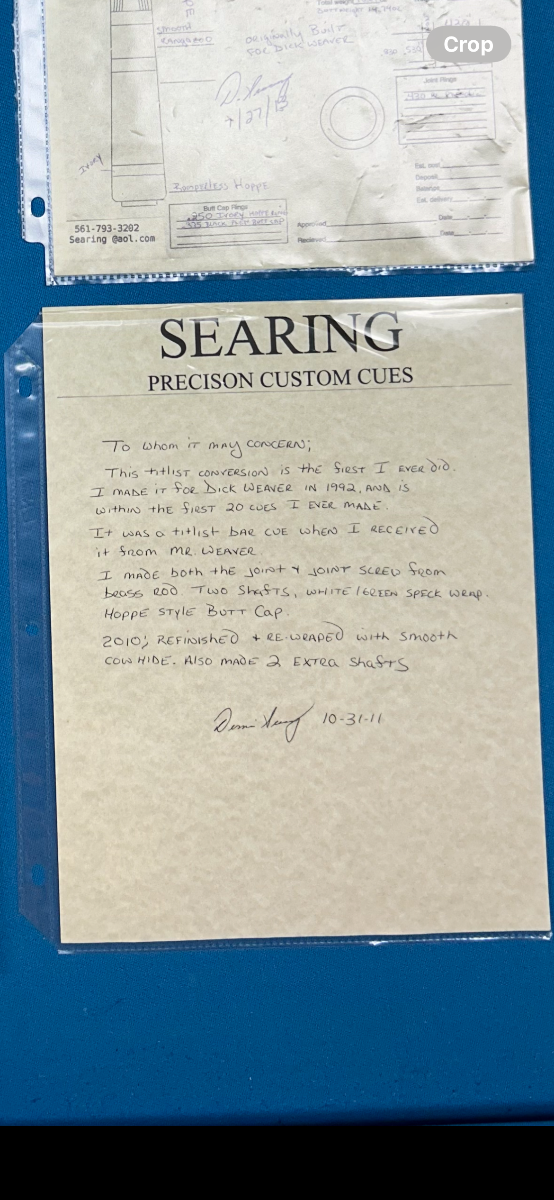 Crop
smooth
KANGAROO
ORIGINALLY BUILT
FOR DICK WEAVER
Joint Rings
Ivory
BUMPERLESS HOPPE
Butt Cap Rings
561-793-3202
Searing @aol.com
Est. cost
Deposit
Balance
Est. delivery
Approved
Date
Recieved
Date
SEARING
PRECISON CUSTOM CUES
TO whom iT mAy CONCERN;
This titlist CONVERSION is the first I EVER DiD.
I mADE iT for Dick WEAVER iN 1992, AND is
within the first 20 CUES I EVER MADE.
It was a titlist BAR CUE when I RECEIVED
it from MR. WEAVER
I mADE both the JOiNT & JOINT SCREW from
brass ROD. Two Shafts, WHITE/GREEN SPECK WRAP.
HOPPE STYLE BUTT CAP.
2010; REFiNiSHED + RE-WRAPED with Smooth
COWHIDE. Also MADE 2 EXTRA Shafts
10-31-11